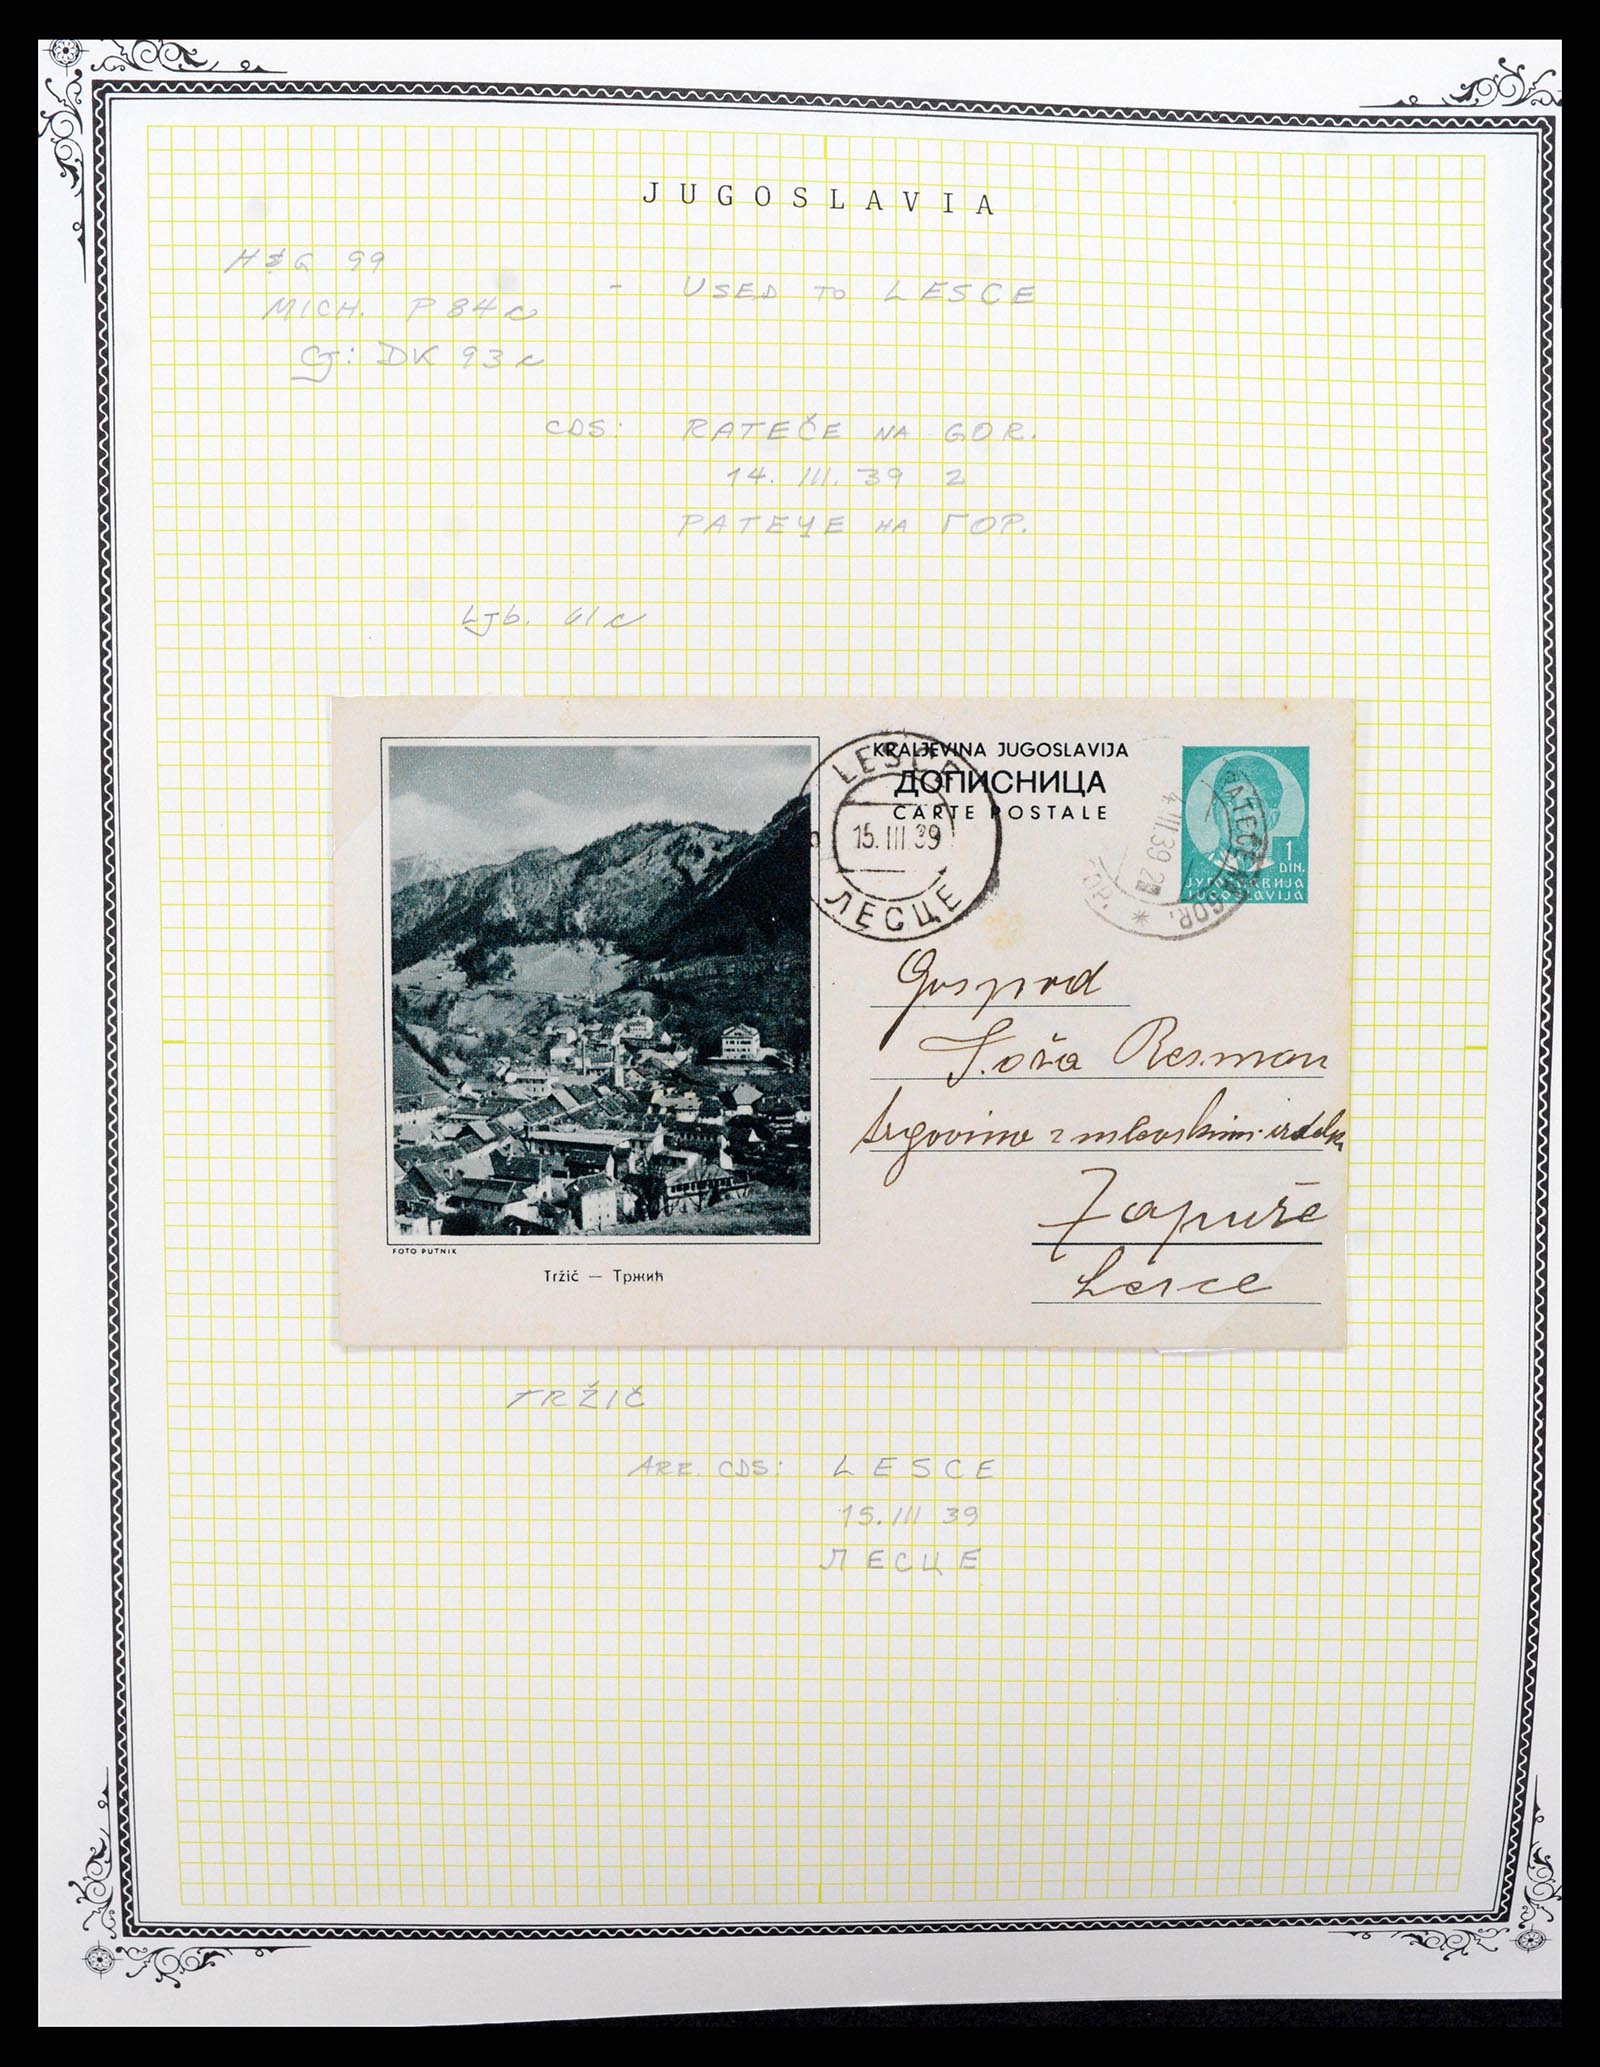 JUGOSLAVIA
H&G 99
MICH. P 84c
- USED TO LESCE
CJ: DK 93c
CDS: RATEČE NA GOR.
14. III. 39 2
РАТЕЧЕ НА ГОР.
Ljb.
KRALJEVINA JUGOSLAVIJA
ДОПИСНИЦА
CARTE POSTALE
LESCE
15.III.39
ЛЕСЦЕ
RATEČE NA GOR.
4 III.39 2
1
DIN.
ЈУГОСЛАВИЈА
JUGOSLAVIJA
Gospod
Resman
trgovina z mlevskimi izdelk
Zapuže
Lesce
FOTO PUTNIK
Tržič — Тржић
TRŽIČ
ARR. CDS: LESCE
15. III 39
ЛЕСЦЕ